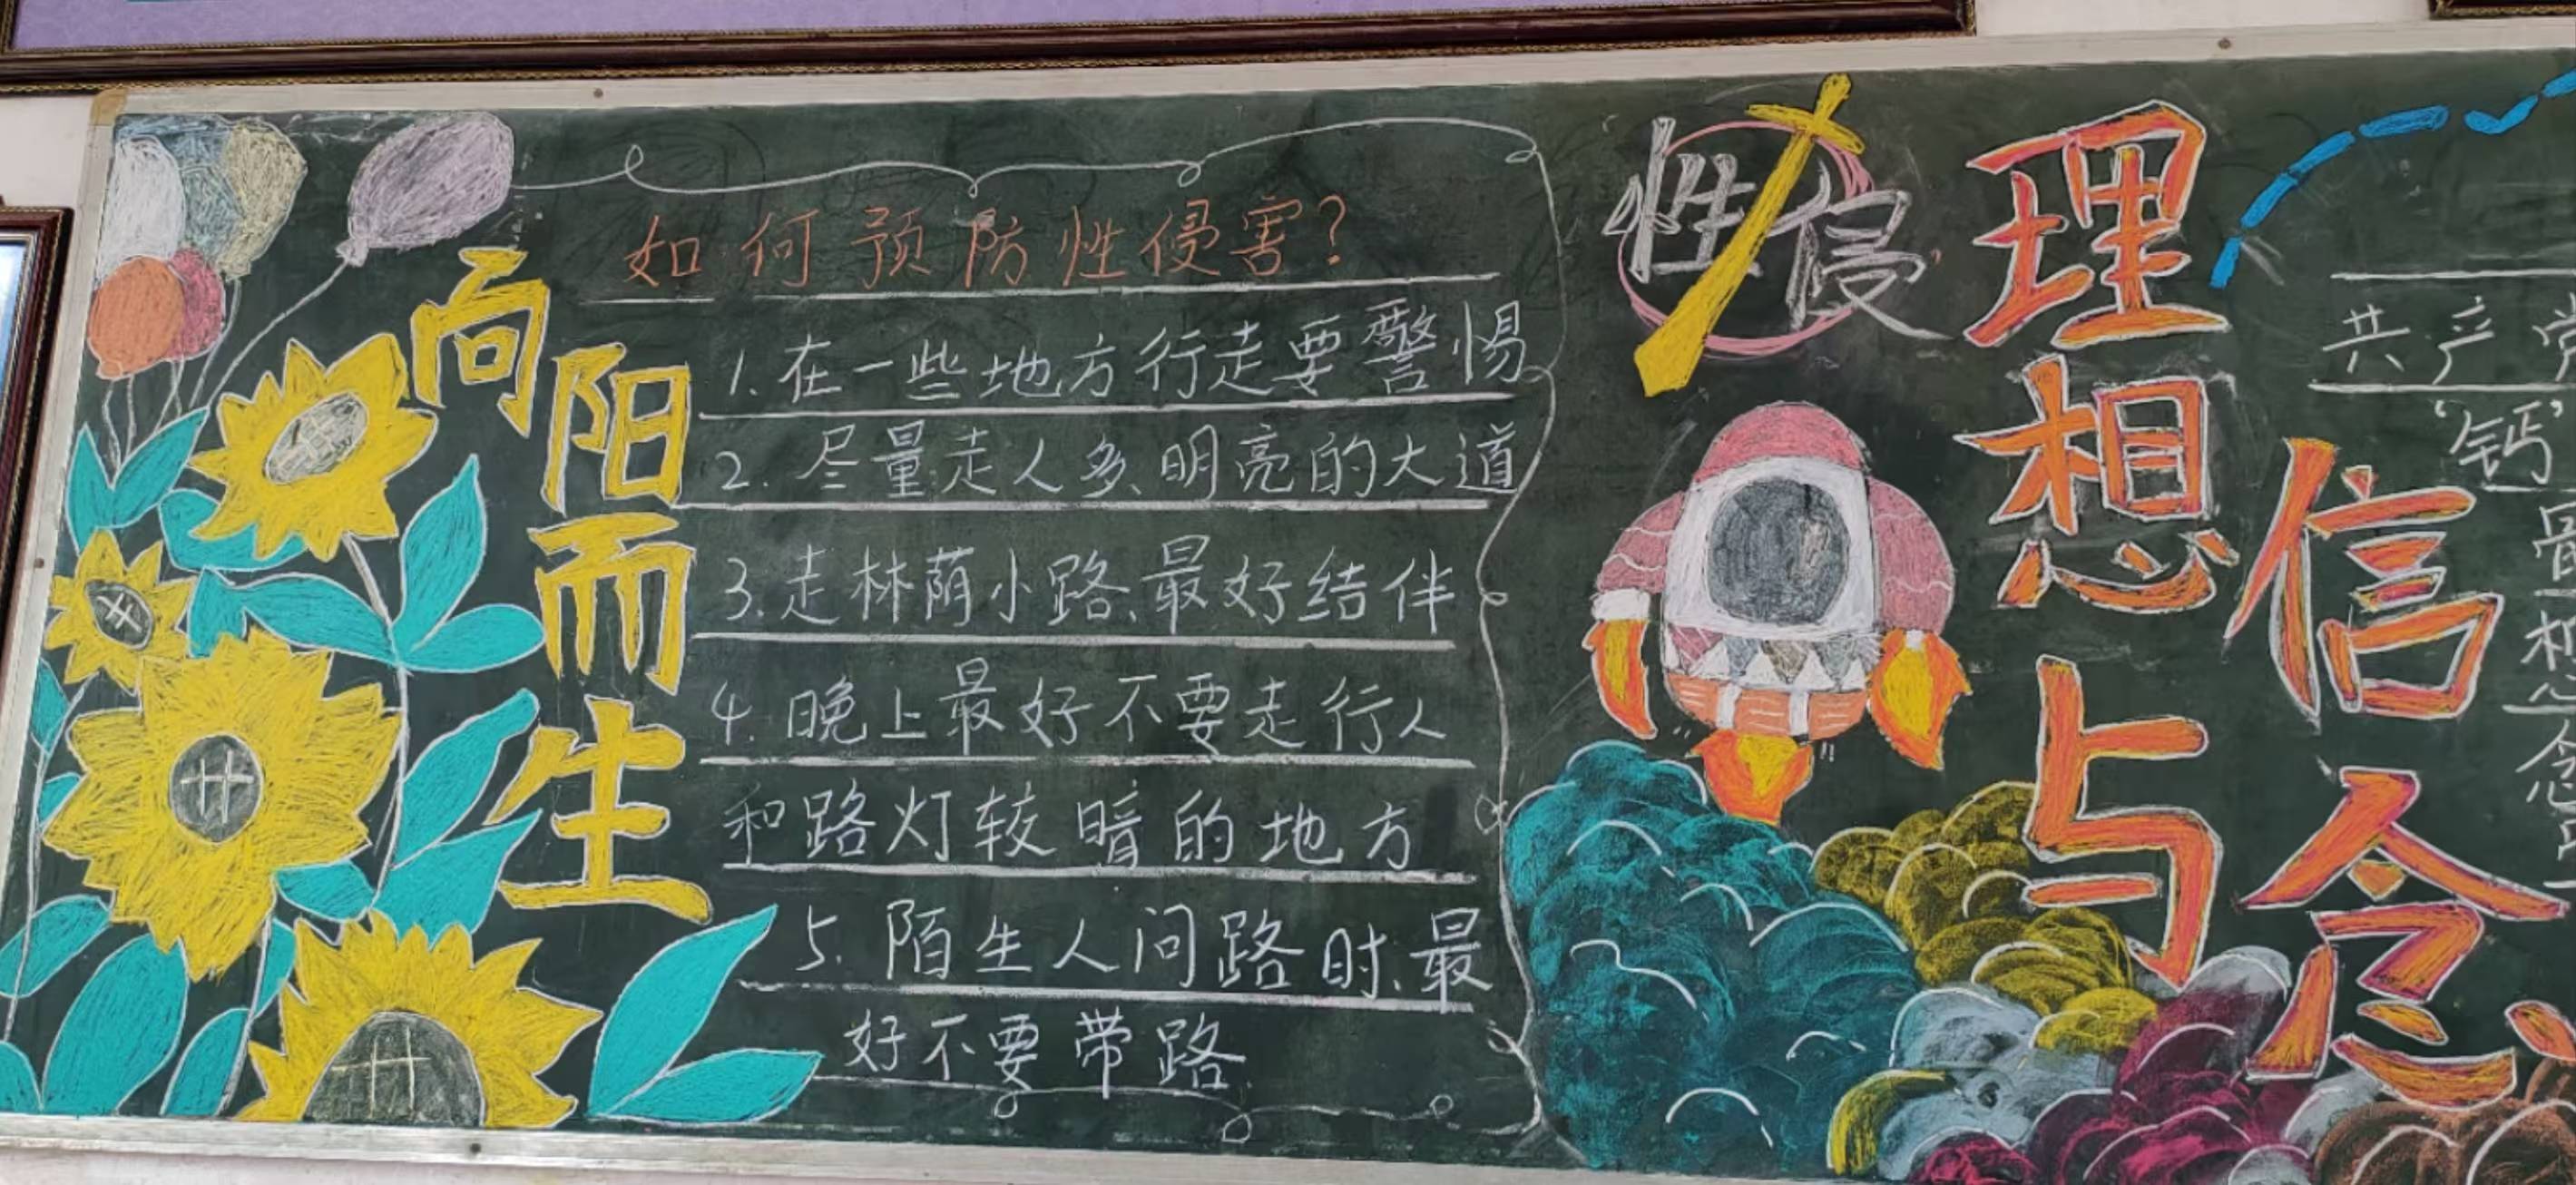 向阳而生
如何预防性侵害?
1.在一些地方行走要警惕
2.尽量走人多、明亮的大道
3.走林荫小路、最好结伴
4.晚上最好不要走行人
和路灯较暗的地方
5.陌生人问路时、最
好不要带路
性侵
理想与
信念
共产党
“钙”